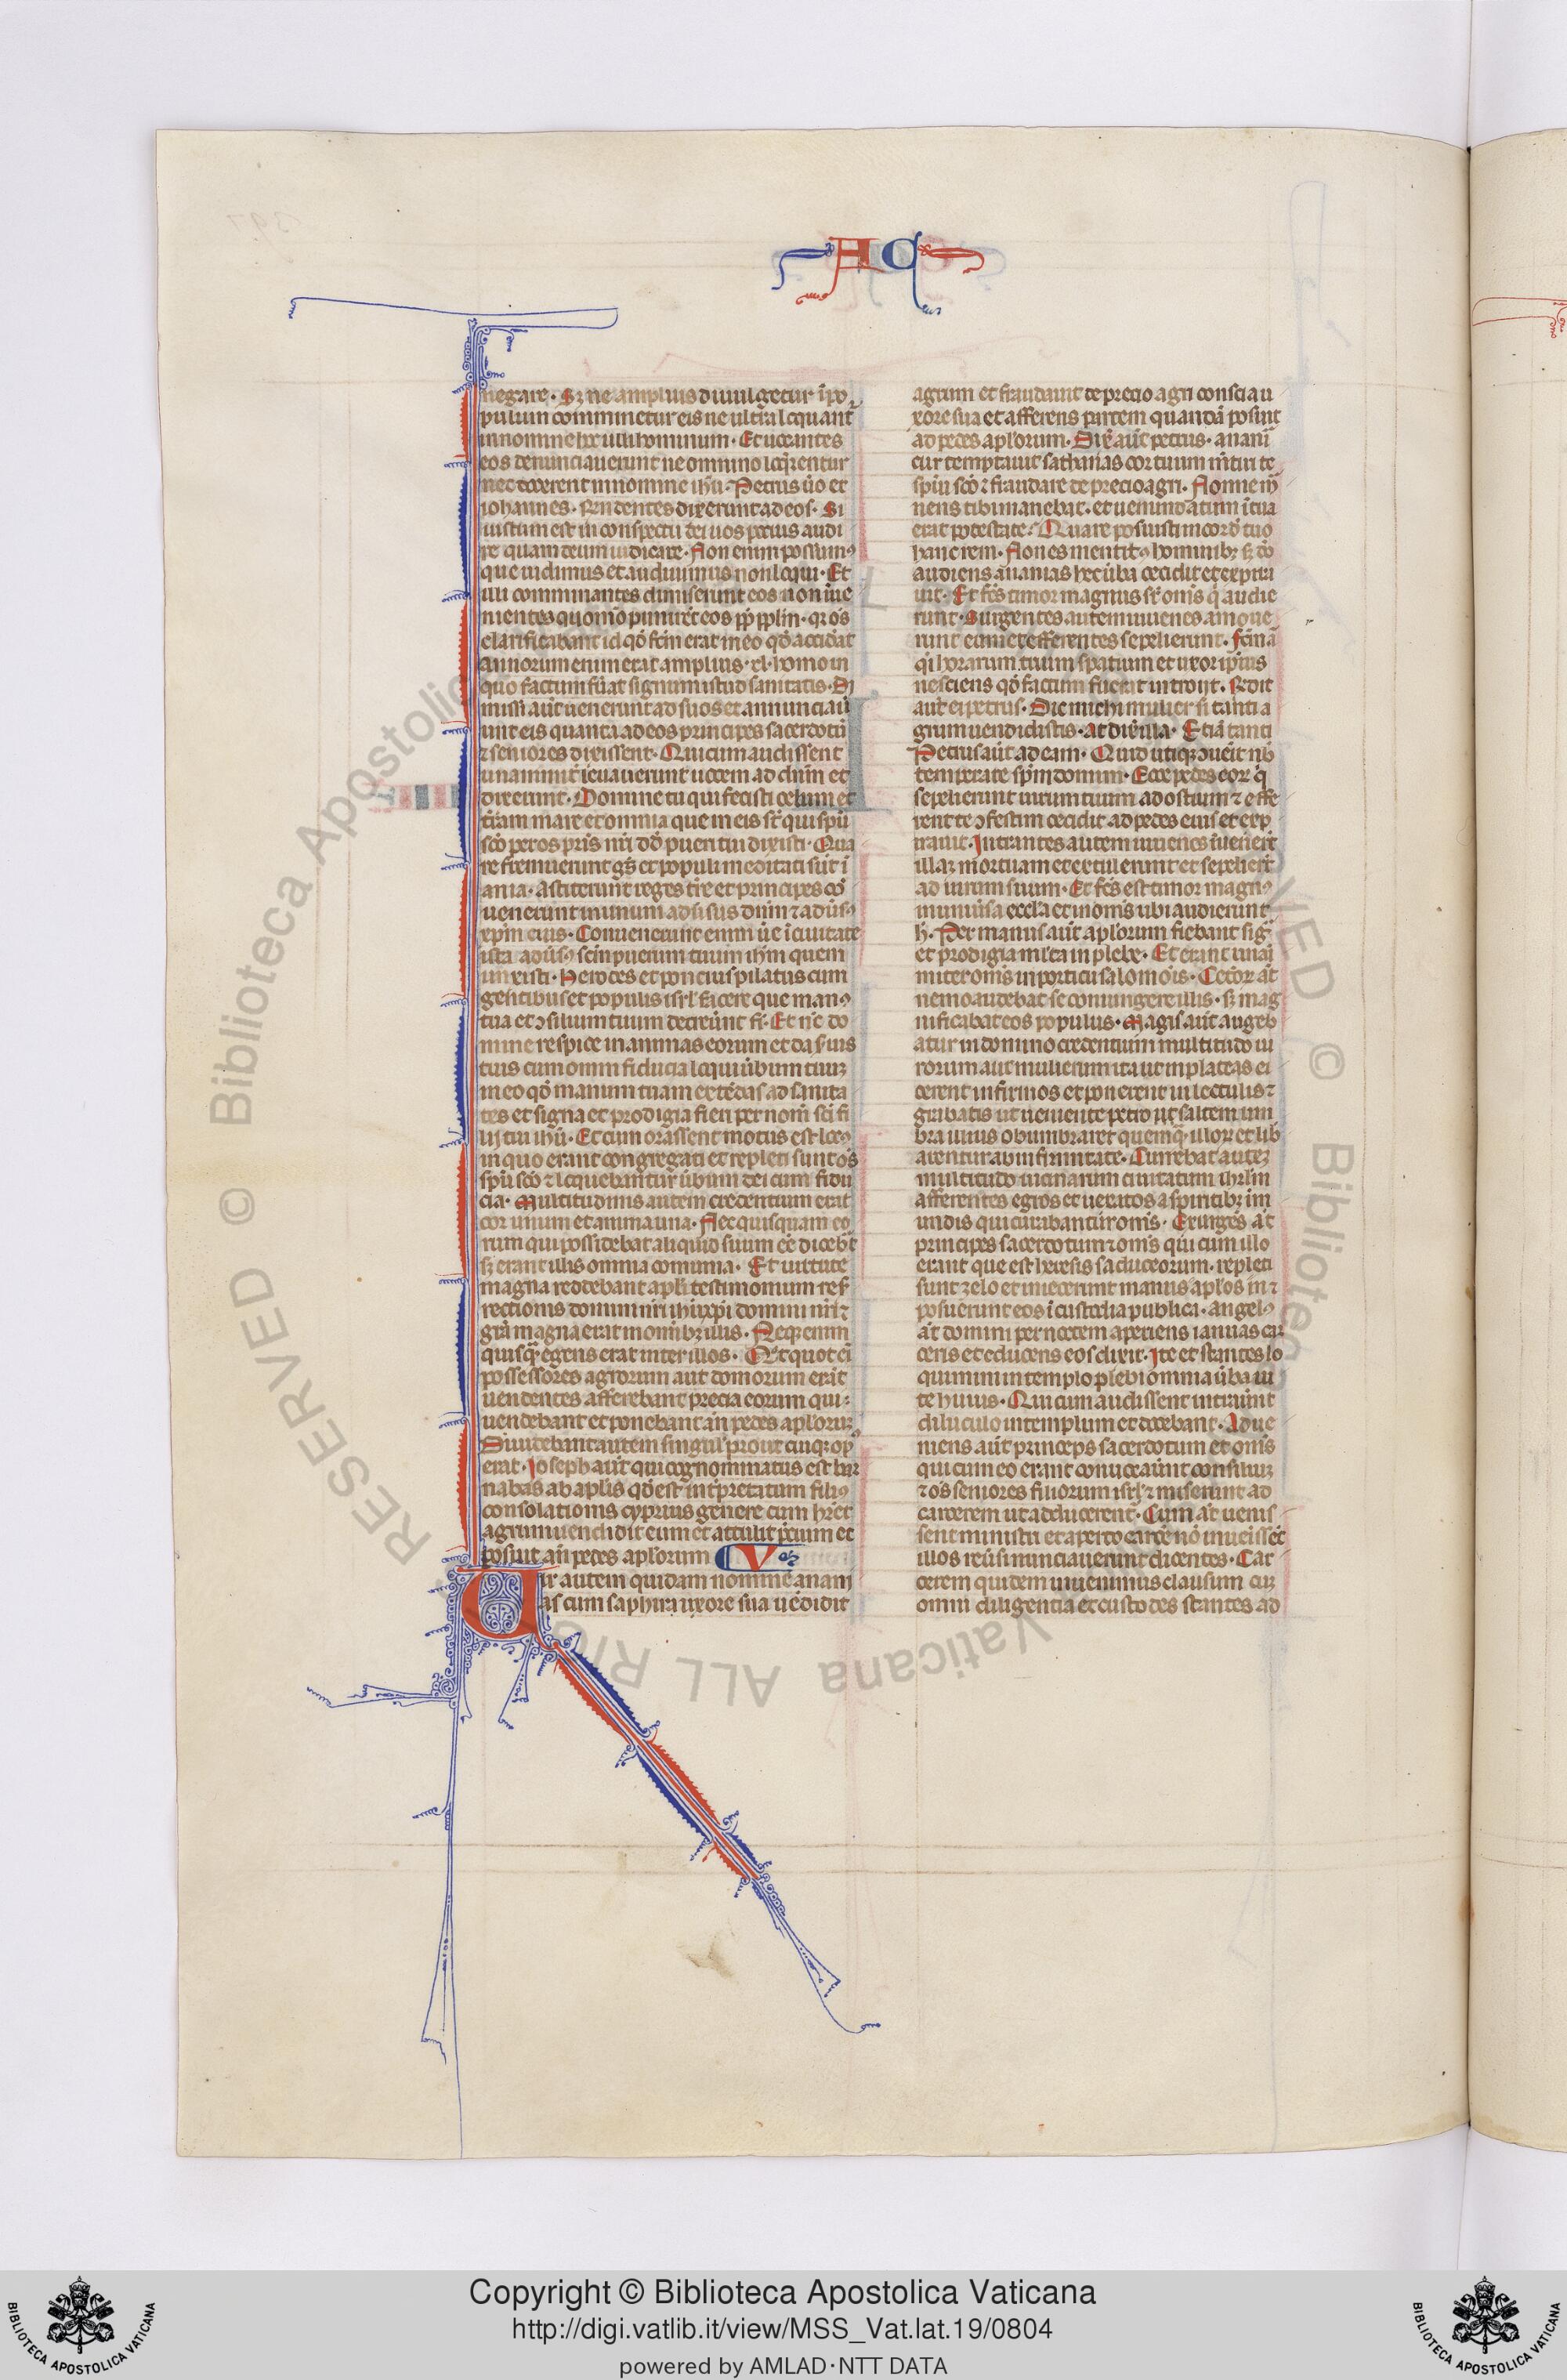 AC
negare. Sꝫ ne amplius diuulgetur ī po
pulum comminetur eis ne ultͣ loquant̄
in nomine hoc ulli hominum. Et uocantes
eos denunciauerunt ne omnino loqͣrentur
nec docerent in nomine ih̄u. Petrus ūo et
iohannes. rn̄dentes dixerunt ad eos. Si
iustum est in conspectu dei uos pocius audi
re quam deum iudicate. Non enim possumꝰ
que uidimus et audiuimus non loqui. Et
illi comminantes dimiserunt eos non inue
nientes quomō punirēt eos ꝓp̄ pplm̄. qꝛ oēs
clarificabant id qđ fcm̄ erat in eo qđ acciđat
Annorum enim erat amplius. xl. homo in
quo factum fūat signum istud sanitatis. Di
missi aūt uenerunt ad suos et annunciaū
unt eis quanta ad eos principes sacerdotū
⁊ seniores dixissent. Qui cum audissent
unanimit̄ leuauerunt uocem ad dn̄m et
dixerunt. Domine tu qui fecisti celum et
tr̄am mare et omnia que in eis st̄ qui spū
sc̄o per os pr̄is nr̄i dđ pueri tui dixisti. Qua
re fremuerunt gn̄s et populi meditati sūt ī
ania. Astiterunt reges tr̄e et principes cō
uenerunt in unum aduersus dn̄m ⁊ adūsꝰ
xp̄m eius. Conuenerunt enim ūe ī ciuitate
ista adūsꝰ sc̄m puerum tuum ih̄m quem
unxisti. Herodes et poncius pilatus cum
gentibus et populis isrl̄ facere que manꝰ
tua et ↄsilium tuum decreūnt fi. Et nc̄ do
mine respice in minas eorum et da suis
tuis cum omni fiducia loqui ūbum tuuꝫ
in eo qđ manum tuam extēdas ad sanita
tes et signa et prodigia fieri per nom̄ sc̄i fi
lij tui ih̄u. Et cum orassent motus est locꝰ
in quo erant congregati et repleti sunt oēs
spū sc̄o ⁊ loquebantur ūbum dei cum fidu
cia. Multitudinis autem credentium erat
cor unum et anima una. Nec quisquam eo
rum qui possidebat aliquid suum eē diceb̄t
sꝫ erant illis omnia comunia. Et uirtute
magna reddebant apl̄i testimonium resˀ
rectionis domini nr̄i ih̄u xp̄i domini nr̄i ⁊
gr̄a magna erat in omnibꝫ illis. Neqꝫ enim
quisqͣ egens erat inter illos. Qͦtquot eī
possessores agrorum aut domorum erāt
uendentes afferebant precia eorum qui
uendebant et ponebant an̄ pedes apl̄oruꝫ
Diuidebant autem singul̄ prout cuiqꝫ opꝰ
erat. Ioseph aūt qui cognominatus est bar
nabas ab apl̄is qđ est int̄pretatum filiꝰ
consolationis cyprius genere cum hr̄et
agrum uendidit eum et attulit p̄cium et
posuit an̄ pedes apl̄orum V
Uir autem quidam nomine anani
as cum saphira uxore sua uēdidit
agrum et fraudauit de precio agri conscia u
xore sua et afferens partem quandā posuit
ad pedes apl̄orum. Dix̄ aūt petrus. anani
cur temptauit sathanas cor tuum mītiri te
spū sc̄o ⁊ fraudare de precio agri. Nonne m̄
nens tibi manebat. et uenundatum ī tua
erat potestate. Quare posuisti in corđ tuo
hanc rem. Non es mentitꝰ hominibꝫ sꝫ dō
audiens ananias hec ūba cecidit et expira
uit. Et fc̄s timor magnus sr̄ om̄s q̄ audie
runt. Surgentes autem iuuenes amoue
runt eum et efferentes sepelierunt. Fc̄m ā
qͣi horarum trium spatium et uxor ipīus
nesciens qđ factum fuerat introijt. Rn̄dit
aūt ei petrus. Dic michi mulier si tanti a
grum uendidistis. At dix̄ illa. Etiā tanti
Petrus aūt ad eam. Quid utiqꝫ ↄuēit uob̄
temptare spm̄ domini. Ecce pedes eoꝝ q̄
sepelierunt uirum tuum ad ostium ⁊ effe
rent te ↄfestim cecidit ad pedes eius et exp
irauit. Intrantes autem iuuenes īueneīt
illaꝫ mortuam et extulerunt et sepelierūt
ad uirum suum. Et fc̄s est timor magnꝰ
in uniūsa eccl̄a et in om̄is ubi audierunt
h̄. Per manus aūt apl̄orum fiebant sigͣ
et prodigia ml̄ta in plebe. Et erant unaī
miter om̄is in porticu salomōis. Ceteroꝝ āt
nemo audebat se coniungere illis. sꝫ mag
nificabat eos populus. Magis aūt augeb
atur in domino credentium multitudo ui
rorum aut mulierum ita ut in plateas ei
cerent infirmos et ponerent in lectulis ⁊
grabatis ut ueniente petro ut saltem um
bra illius obumbraret quemqͣ illoꝝ et lib
arentur ab infirmitate. Currebat auteꝫ
multitudo uicinarum ciuitatum ihrl̄m
afferentes egros et uexatos a spiritibꝫ im
undis qui curabantur om̄is. Exurgēs āt
princeps sacerdotum ⁊ om̄is qui cum illo
erant que est heresis saduceorum. repleti
sunt zelo et iniecerunt manus apl̄os in ⁊
posuerunt eos ī custodia publica. angelꝰ
āt domini per noctem aperiens ianuas car
ceris et educens eos dixit. Ite et stantes lo
quimini in templo plebi omnia ūba ui
te huius. Qui cum audissent intraūnt
diluculo in templum et docebant. Adue
niens aūt princeps sacerdotum et om̄is
qui cum eo erant conuocaūnt consiliuꝫ
⁊ oēs seniores filiorum isrl̄ ⁊ miserunt ad
carcerem ut adducerent̄. Cum āt uenis
sent ministri et aperto carcē nō inueīssēt
illos reūsi nunciauerunt dicentes. Car
cerem quidem inuenimus clausum cuꝫ
omni diligentia et custodes stantes ad
Copyright © Biblioteca Apostolica Vaticana
http://digi.vatlib.it/view/MSS_Vat.lat.19/0804
powered by AMLAD·NTT DATA
BIBLIOTECA APOSTOLICA VATICANA
BIBLIOTECA APOSTOLICA VATICANA